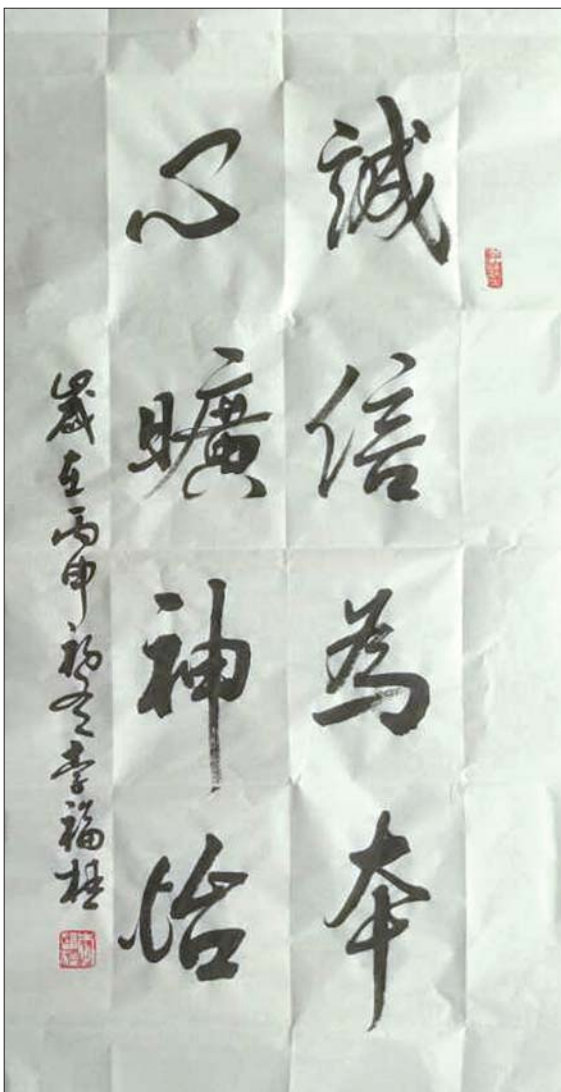 誠信為本
心曠神怡
歲在丙申初冬李福桂